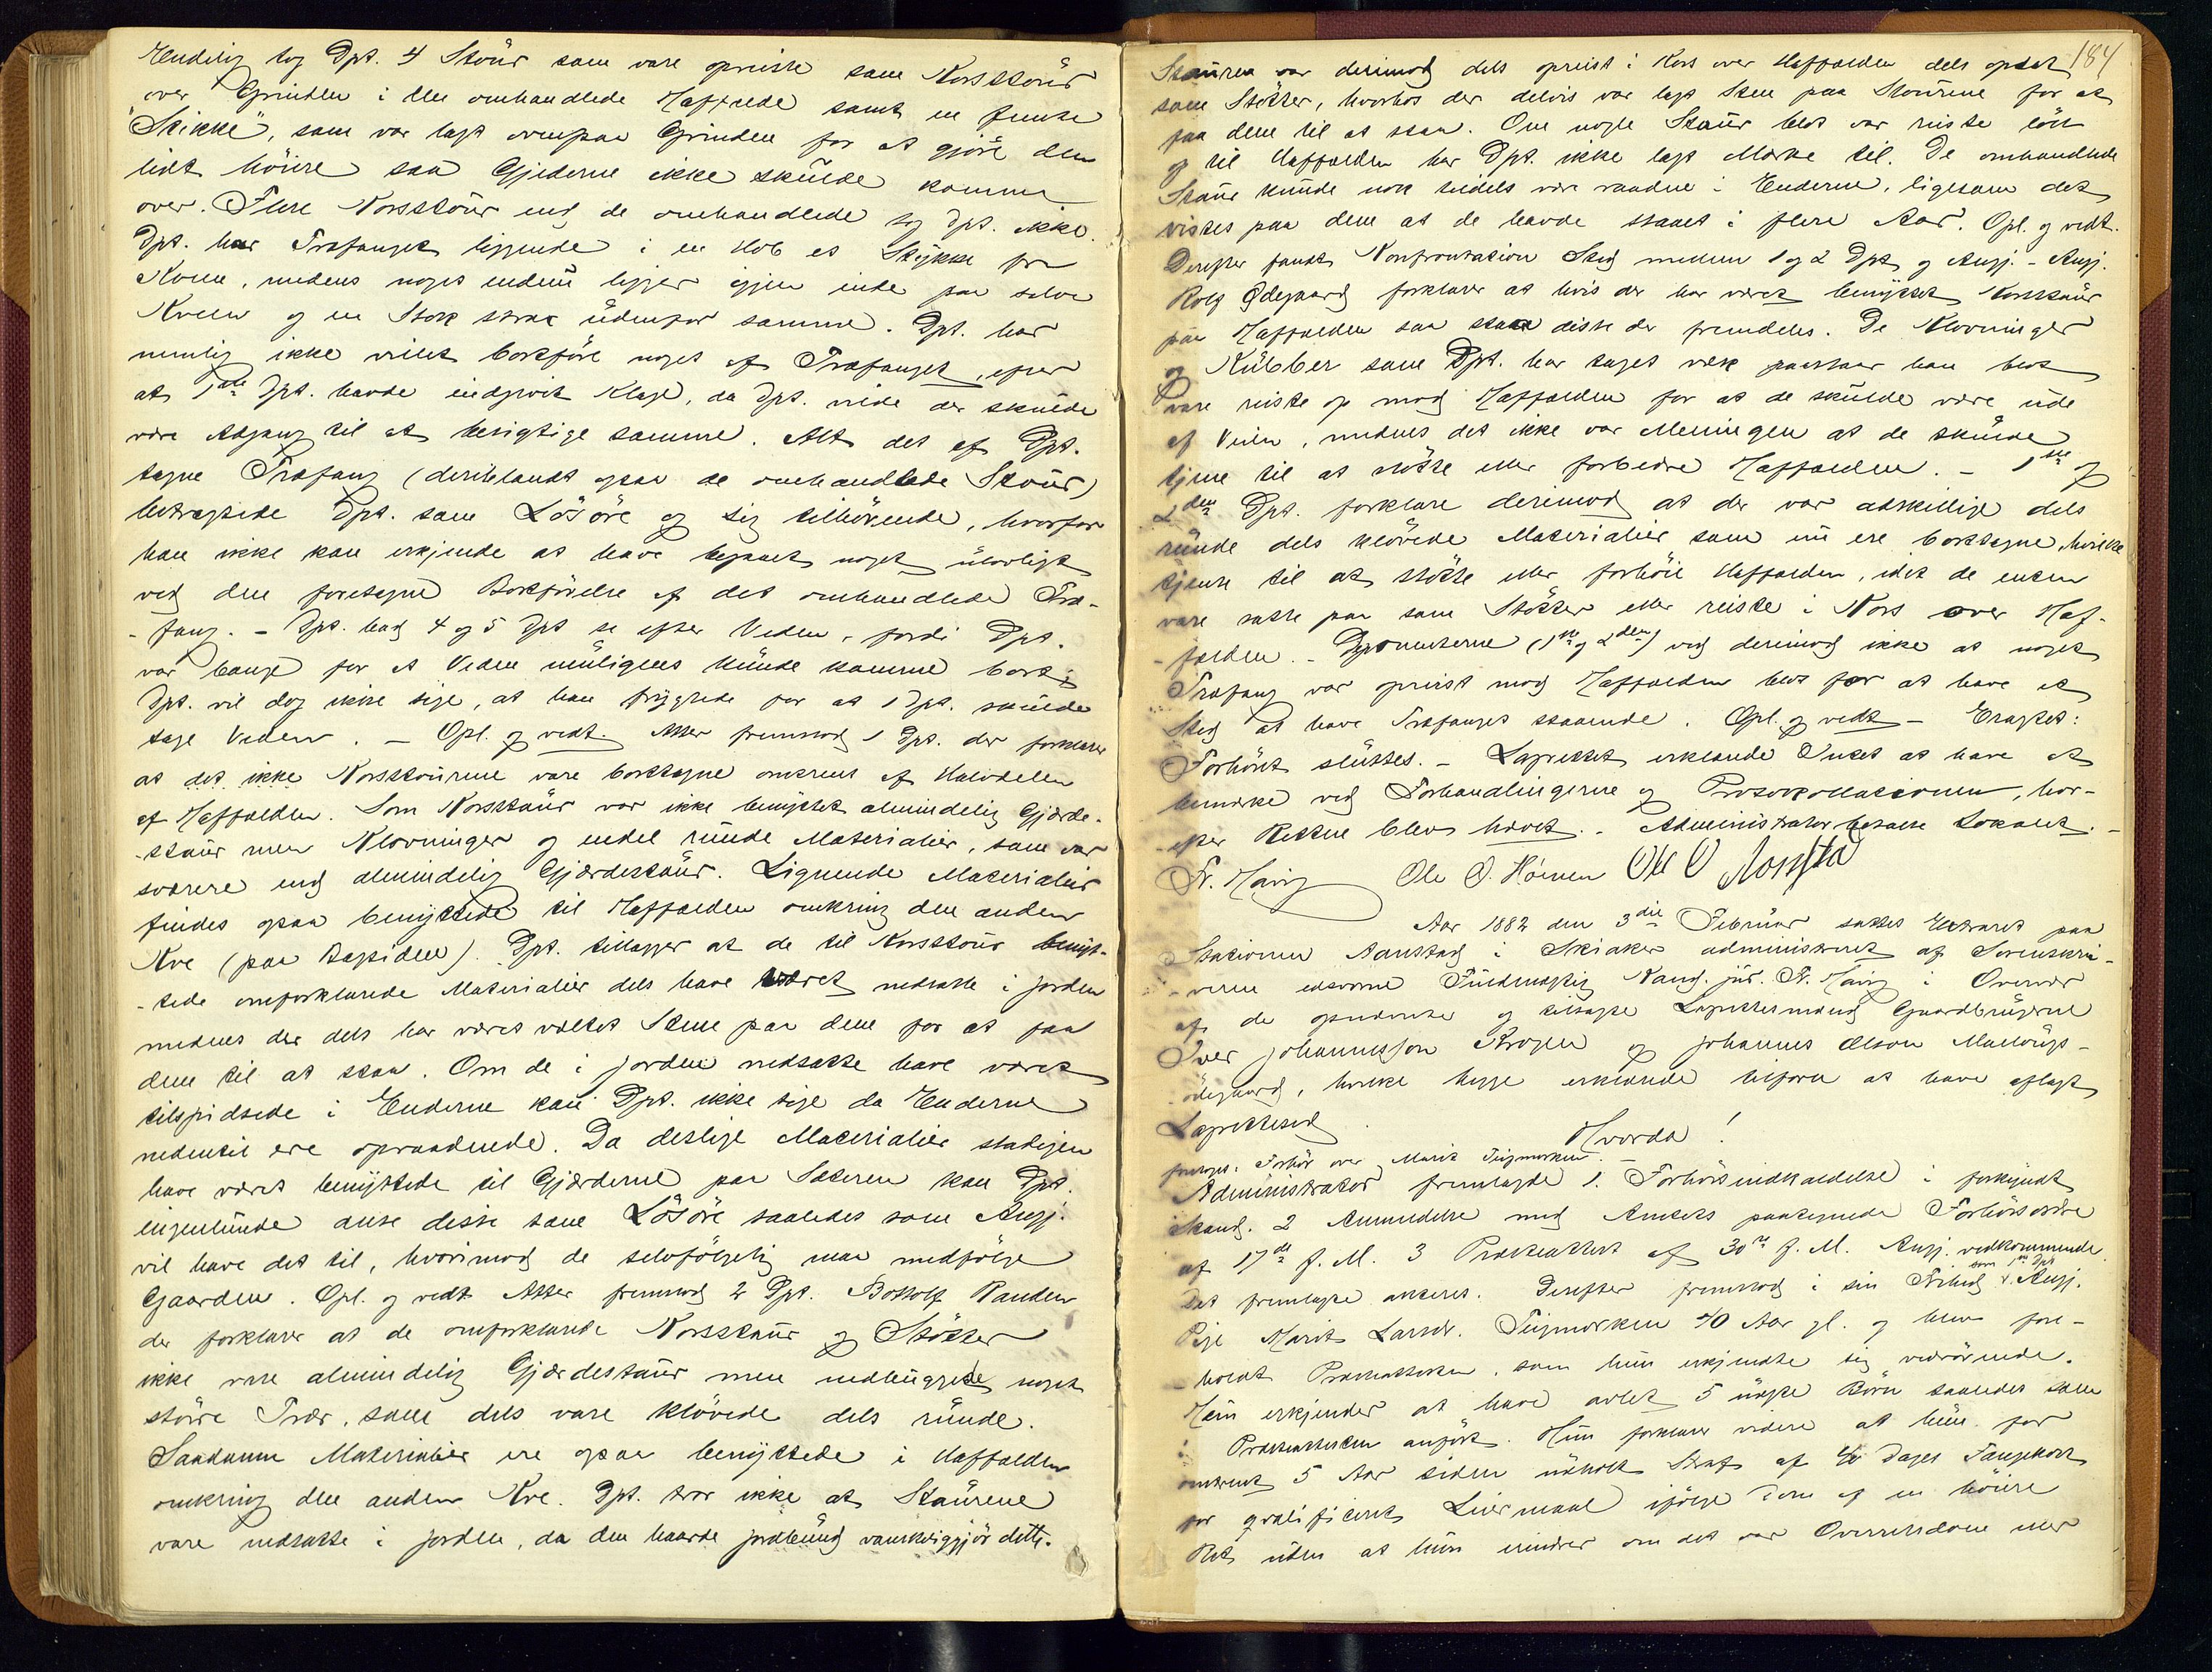 Endelig tog Dpt. 4 Stöur som vare opreiste som Korsstöur
over Grinden i den omhandlede Hafjælde samt en femte
"Stikke", som var lagt ovenpaa Grinden for at gjöre den
lidt höiere saa Gjederne ikke skulde komme
over. Flere Korsstöur end de omhandlede tog Dpt. ikke.
Dpt. har Træfanget liggende i en Hob et Stykke fra
Kveen, medens noget endnu ligger igjen inde paa selve
Kveen og en Stok strax udenfor samme. Dpt. har
nemlig ikke villet bortföre noget af Træfanget, efter
at 1ste Dpt. havde indgivet Klage, da Dpt. vilde der skulde
være Adgang til at besigtige samme. Alt det af Dpt.
tagne Træfang (deriblandt ogsaa de omhandlede Stöur)
betragtede Dpt. som Lösöre og sig tilhörende, hvorfor
han ikke kan erkjende at have begaaet noget ulovligt
ved den foretagne Bortförelse af det omhandlede Træ-
-fang. - Dpt. bad 4 og 5 Dpt se efter Veden, fordi Dpt.
var bange for at Veden muligens kunde komme bort;
Dpt. vil dog ikke sige, at han frygtede for at 1 Dpt. skulde
tage Veden. - Opl. og vedt. Atter fremstod 1 Dpt. der forklarer
at det ikke Korsstöurene vare borttagne omkrent af Halvdelen
af Hafjælden. Som Korsstaur var ikke benyttet almindelig Gjærde-
-staur men Klovninger og endel runde Materialier, som var
sværere end almindelig Gjærdestaur. Lignende Materialier
findes ogsaa benyttede til Hafjælden omkring den anden
Kve (paa Bagsiden). Dpt. tillægger at de til Korsstöur benyt-
-tede omforklarede Materialier dels have været nedsatte i Jorden
medens der dels har været væltet Stene paa dem for at faa
dem til at staa. Om de i Jorden nedsatte have været
tilspidsede i Enderne kan Dpt. ikke sige da Enderne
nedentil ere opraadnede. Da deslige Materialier stadigen
have været benyttede til Gjærderne paa Sæteren kan Dpt.
ingenlunde anse disse som Lösöre saaledes som Angj.
vil have det til, hvorimod de selvfölgelig maa medfölge
Gaarden. Opl. og vedt. Atter fremstod 2 Dpt. Botholf Randen
der forklarer at de omforklarede Korsstaur og Stötter
ikke vare almindelig Gjærdestaur men nedhuggede noget
större Trær, som dels vare klövede dels runde.
Saadanne Materialier ere ogsaa benyttede i Hafjælden
omkring den anden Kve. Dpt. tror ikke at Staurene
vare nedsatte i Jorden, da den haarde Jordbund vanskeliggjör dette.
184
Stauren var derimod dels opreist i Kors over Hafjælden dels opsat
som Stötter, hvorhos der delvis var lagt Sten paa Staurene for at
faa dem til at staa. Om nogle Staur blot var reiste löst
og til Hafjælden har Dpt. ikke lagt Mærke til. De omhandlede
Staur kunde nok tildels være raadne i Enderne, ligesom det
vistes paa dem at de havde staaet i flere Aar. Opl. og vedt.
Derefter fandt Konfrontation Sted mellem 1 og 2 Dpt og Angj. - Angj.
Rolf Ödegaard forklarer at hvis der har været benyttet Korsstaur
paa Hafjælden saa staar disse der fremdeles. De Klovninger
og Kubber som Dpt. har taget væk paastaar han blot
vare reiste op mod Hafjælden for at de skulde være ude
af Veien, medens det ikke var Meningen at de skulde
tjene til at stötte eller forbedre Hafjælden. - 1ste og
2den Dpt. forklare derimod at der var adskillige dels
runde dels klövede Materialier som nu ere borttagne, hvilke
tjente til at stötte eller forhöie Hafjælden, idet de enten
vare satte paa som Stötter eller reiste i Kors over Haf-
-jælden. - Deponenterne (1ste og 2den) ved derimod ikke at noget
Træfang var opreist mod Hafjælden blot for at have et
Sted at have Træfanget staaende. Opl. og vedt. - Eragtet:
Forhöret sluttes. - Lagrettet erklærede Intet at have at
bemærke ved Forhandlingerne og Protokollationen, hvor-
-efter Retten blev hævet. - Administrator betalte Lokalet. -
Fr. Harig Ole O. Höinen Ole O Nonstad
Aar 1882 den 3die Februar sattes Extraret paa
Stationen Aanstad i Skiaker administreret af Sorenskri-
-verens edsvorne Fuldmægtig Kand. jur. Fr. Harig i Overvær
af de opnævnte og tilsagte Lagrettesmænd Gaardbrugerne
Iver Johannesson Krogen og Johannes Olson Marlaugs-
-ödegaard, hvilke begge erklærede tilforn at have aflagt
Lagretteseed.
Hvorda!
foretoges: Forhör over Marit Teigmorken. -
Administrator fremlagde 1. Forhörsindkaldelse i forkyndt
Stand. 2 Anmeldelse med Amtets paategnede Forhörsordre
af 17de f. M. 3 Præsteattest af 30te f. M. Angj. vedkommende.
Det fremlagte acteres. Derefter fremstod i sin Frihed som 1ste Dpt Angj.
Pige Marit Larsdr. Teigmorken 40 Aar gl. og blev fore-
-holdt Præsteattesten, som hun erkjendte sig vedrörende.
Hun erkjender at have avlet 5 uægte Börn saaledes som
i Præsteattesten anfört. Hun forklarer videre at hun for
omtrent 5 Aar siden udholdt Straf af 40 Dages Fangekost
for qvalificeret Leiermaal ifölge Dom af en höiere
Ret, uden at hun erindrer om det var Overretsdom eller